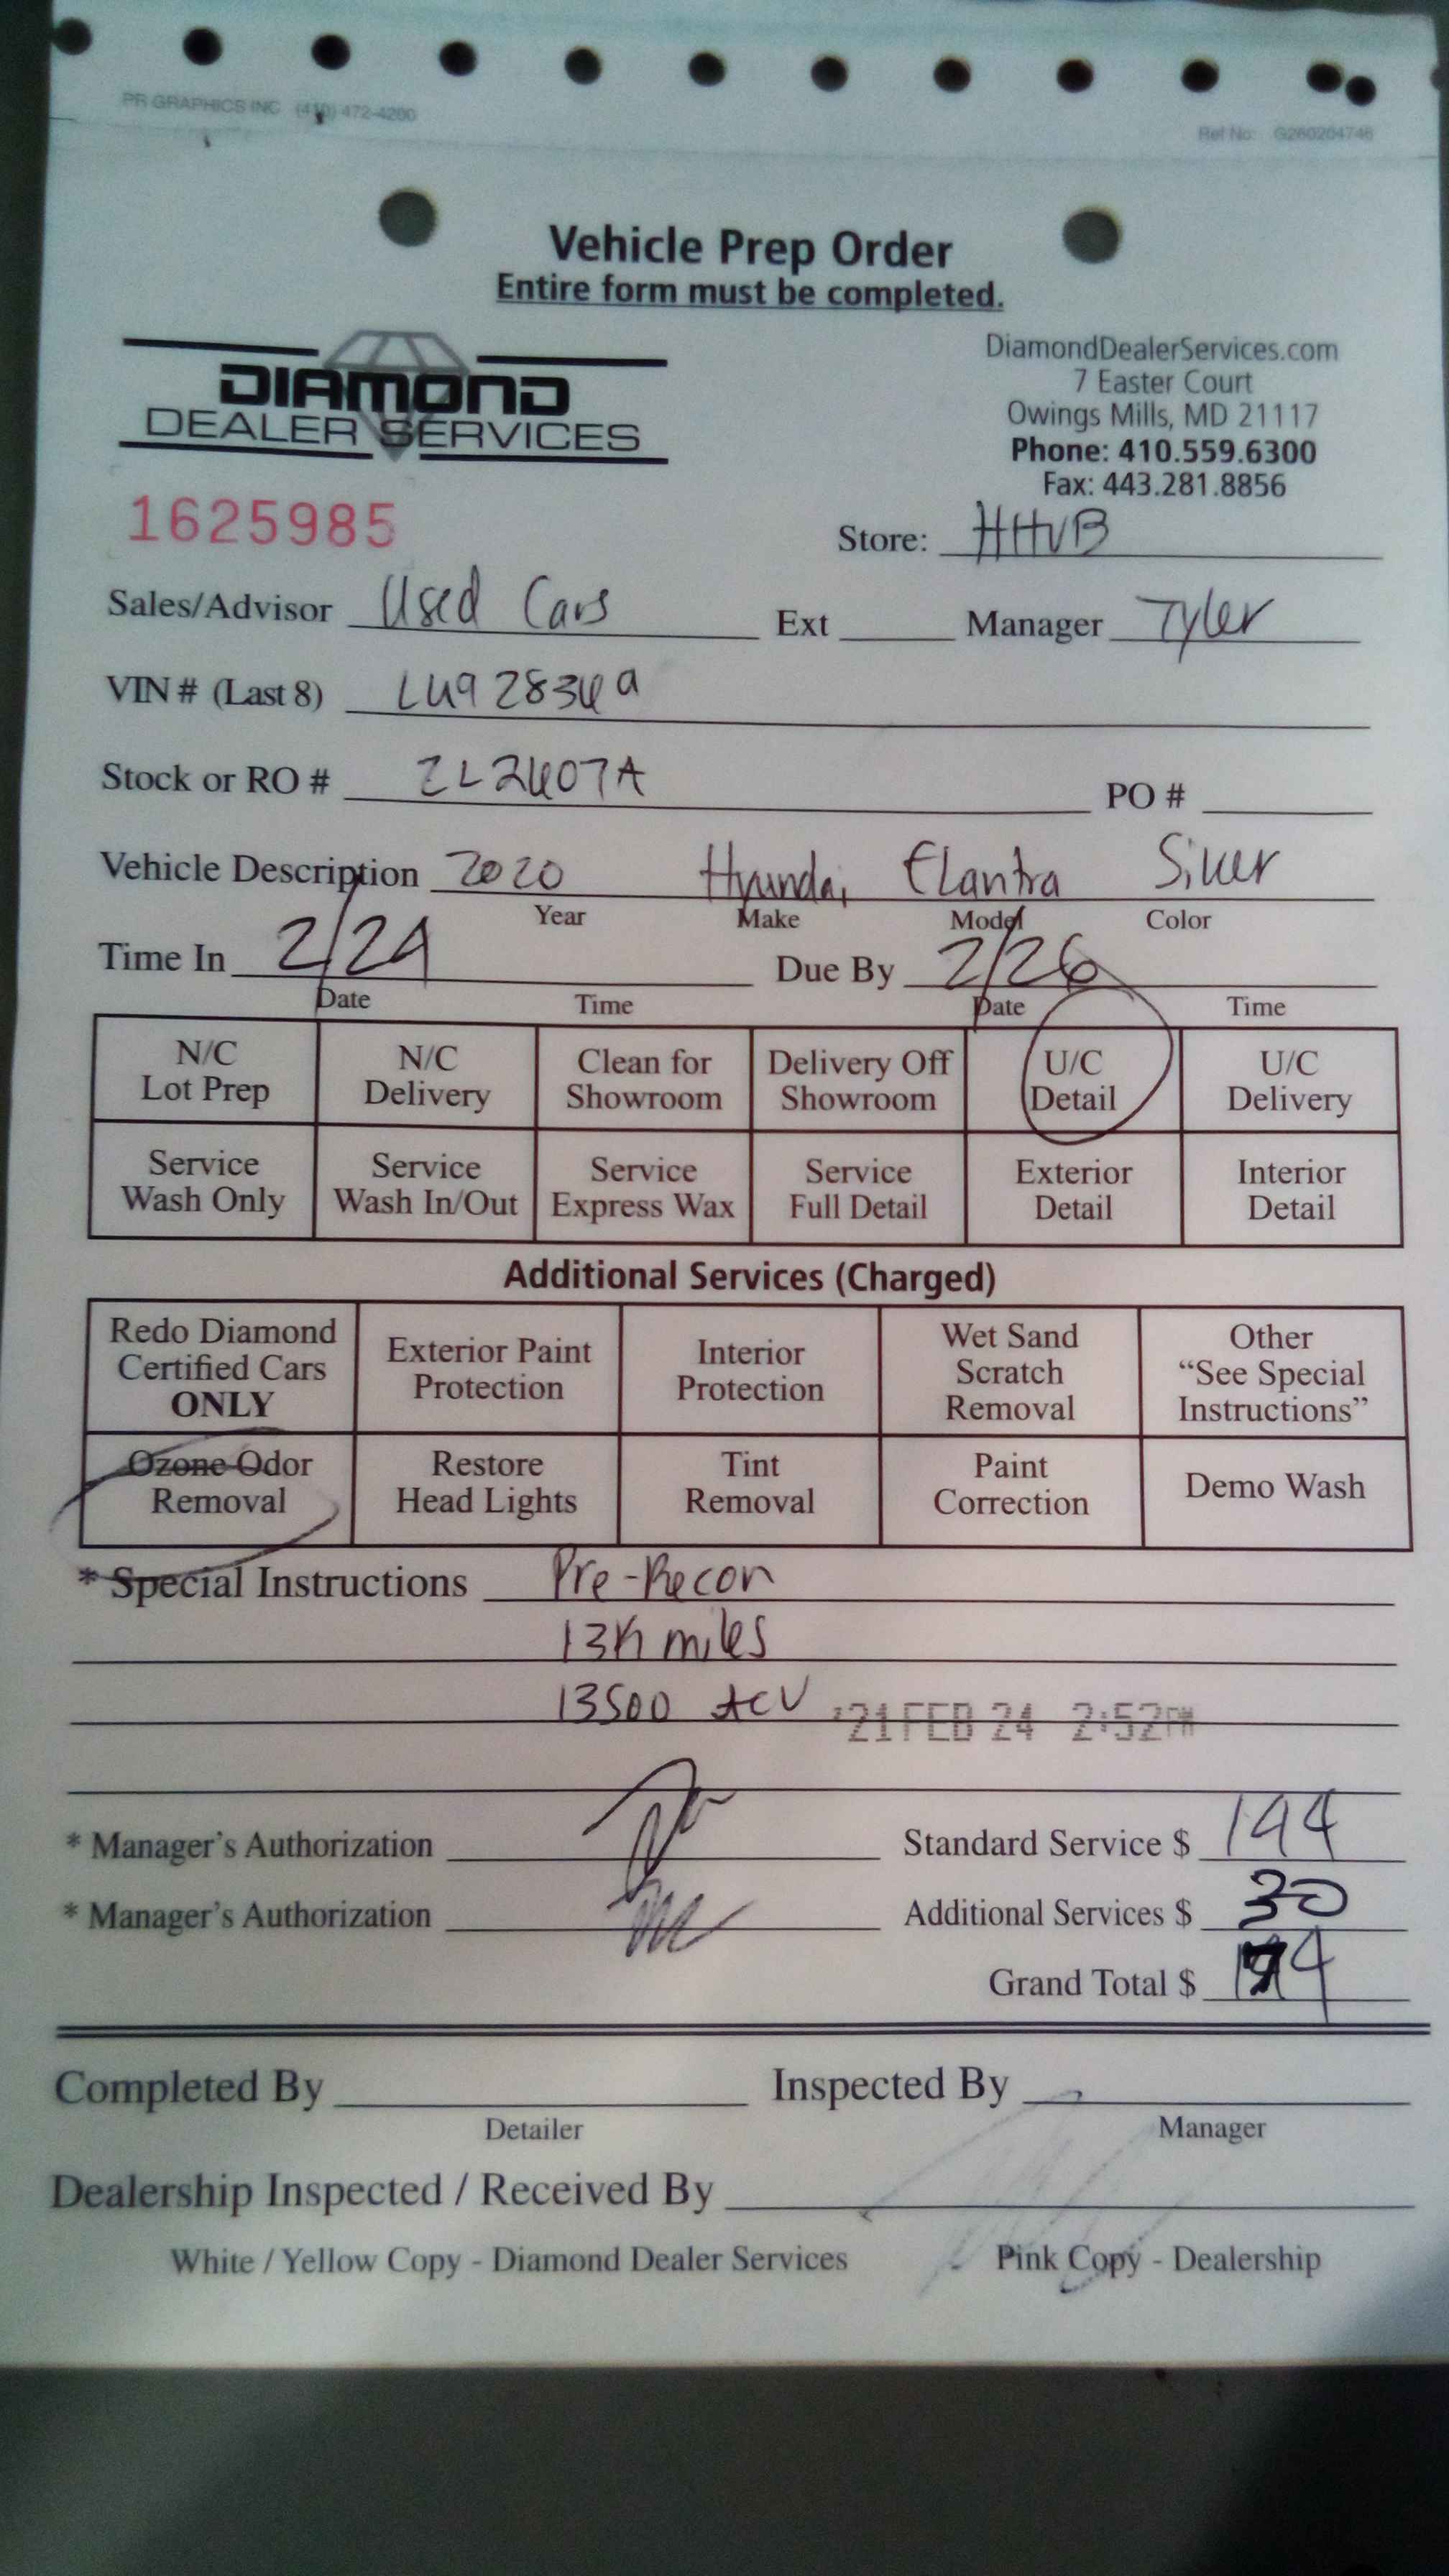 PR GRAPHICS INC (410) 472-4200
Ref No: G260204746
Vehicle Prep Order
Entire form must be completed.
DIAMOND
DEALER SERVICES
DiamondDealerServices.com
7 Easter Court
Owings Mills, MD 21117
Phone: 410.559.6300
Fax: 443.281.8856
1625985
Store: HHVB
Sales/Advisor Used Cars Ext Manager Tyler
VIN # (Last 8)
Stock or RO # ZL2607A PO #
Vehicle Description 2020 Hyundai Elantra Silver
Year Make Model Color
Time In Due By 2/26
Date Time Date Time
N/C Lot Prep N/C Delivery Clean for Showroom Delivery Off Showroom U/C Detail U/C Delivery
Service Wash Only Service Wash In/Out Service Express Wax Service Full Detail Exterior Detail Interior Detail
Additional Services (Charged)
Redo Diamond Certified Cars ONLY Exterior Paint Protection Interior Protection Wet Sand Scratch Removal Other "See Special Instructions"
Ozone Odor Removal Restore Head Lights Tint Removal Paint Correction Demo Wash
* Special Instructions Pre-Recon
13K miles
13500 ACV '21 FEB 24 2:52PM
* Manager's Authorization Standard Service $ 144
* Manager's Authorization Additional Services $ 30
Grand Total $ 174
Completed By Inspected By
Detailer Manager
Dealership Inspected / Received By
White / Yellow Copy - Diamond Dealer Services - Pink Copy - Dealership